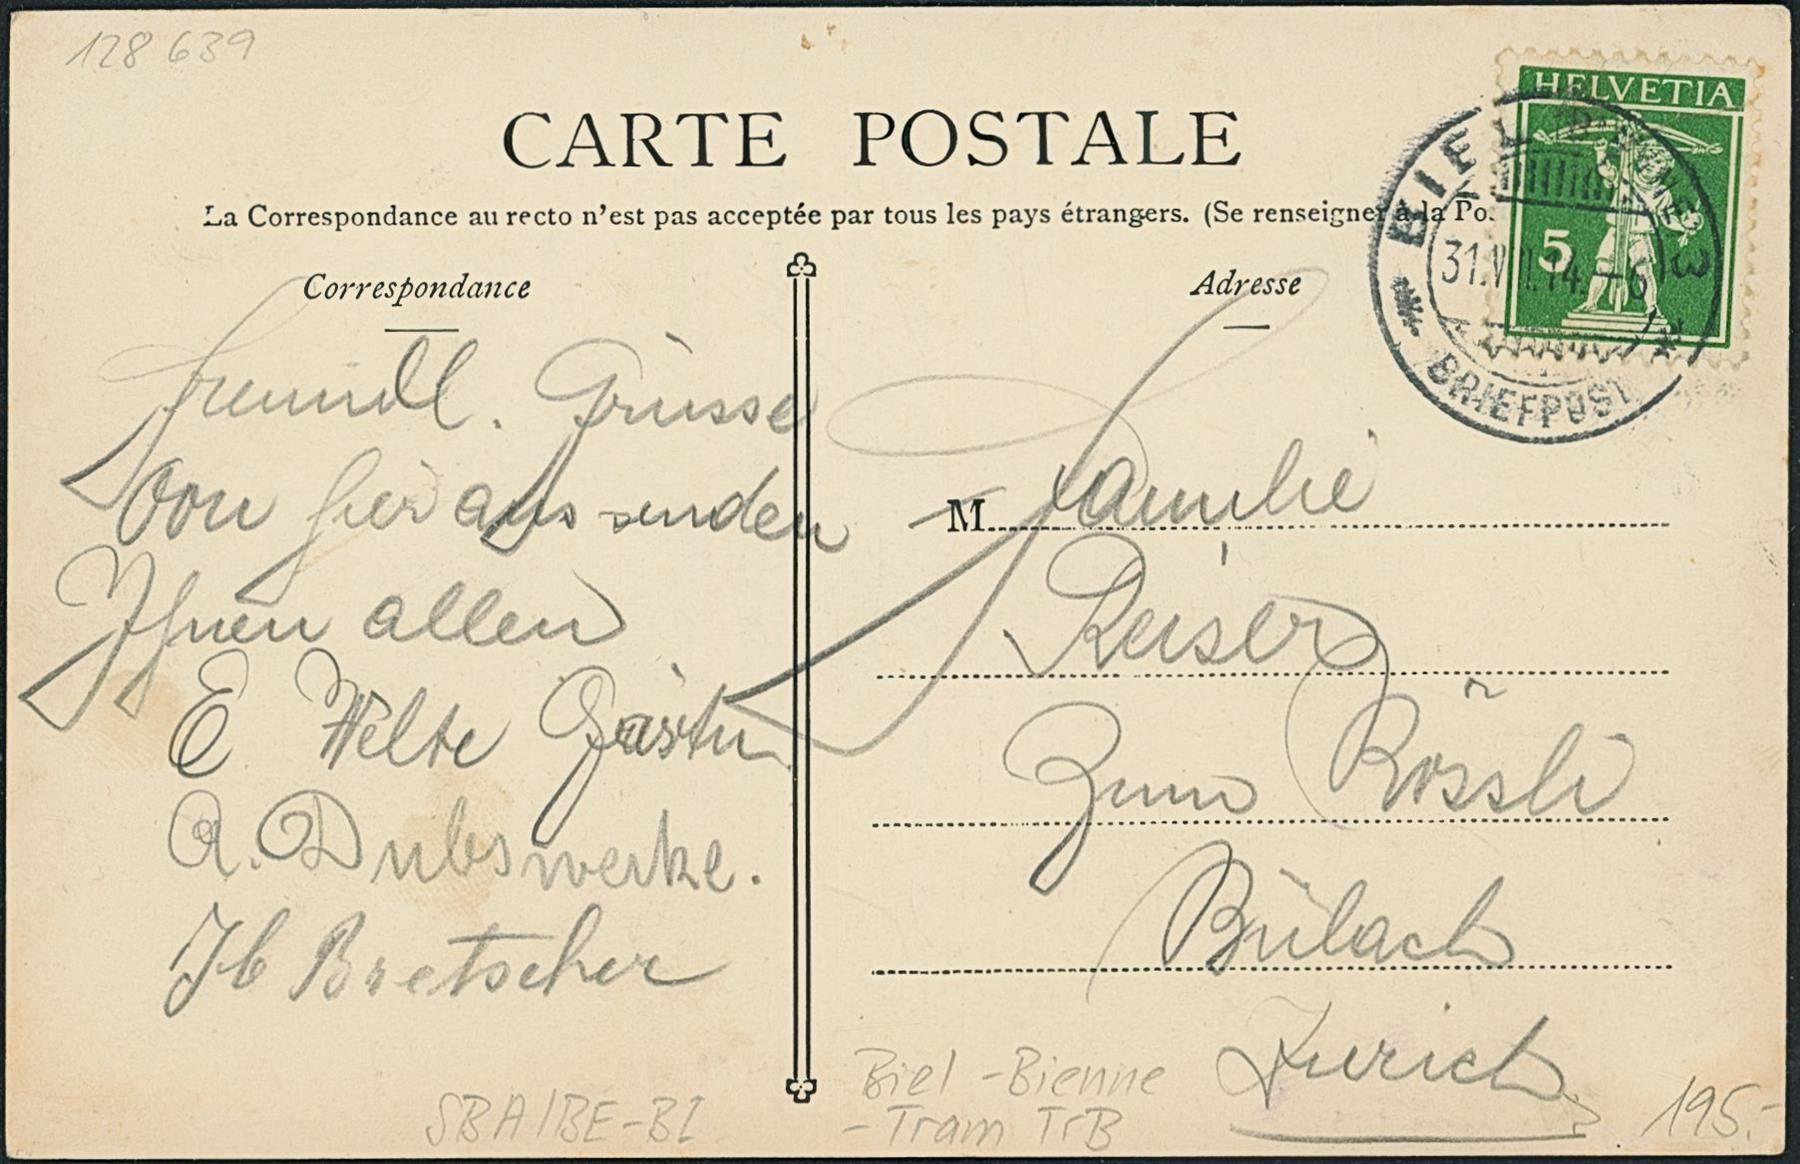 128 639
CARTE POSTALE
La Correspondance au recto n'est pas acceptée par tous les pays étrangers. (Se renseigner à la Pos
Correspondance
Freundl. Grüsse
von hier aus senden
Ihnen allen
E Welte
A. Dubs
Jb Bretscher
SBA/BE-BI
Adresse
M
Familie
Keiser
Zum Rössli
Bülach
Zürich
Biel - Bienne
- Tram TrB
195.-
HELVETIA
5
BIEL
3
31.VII.14.-6
BRIEFPOST